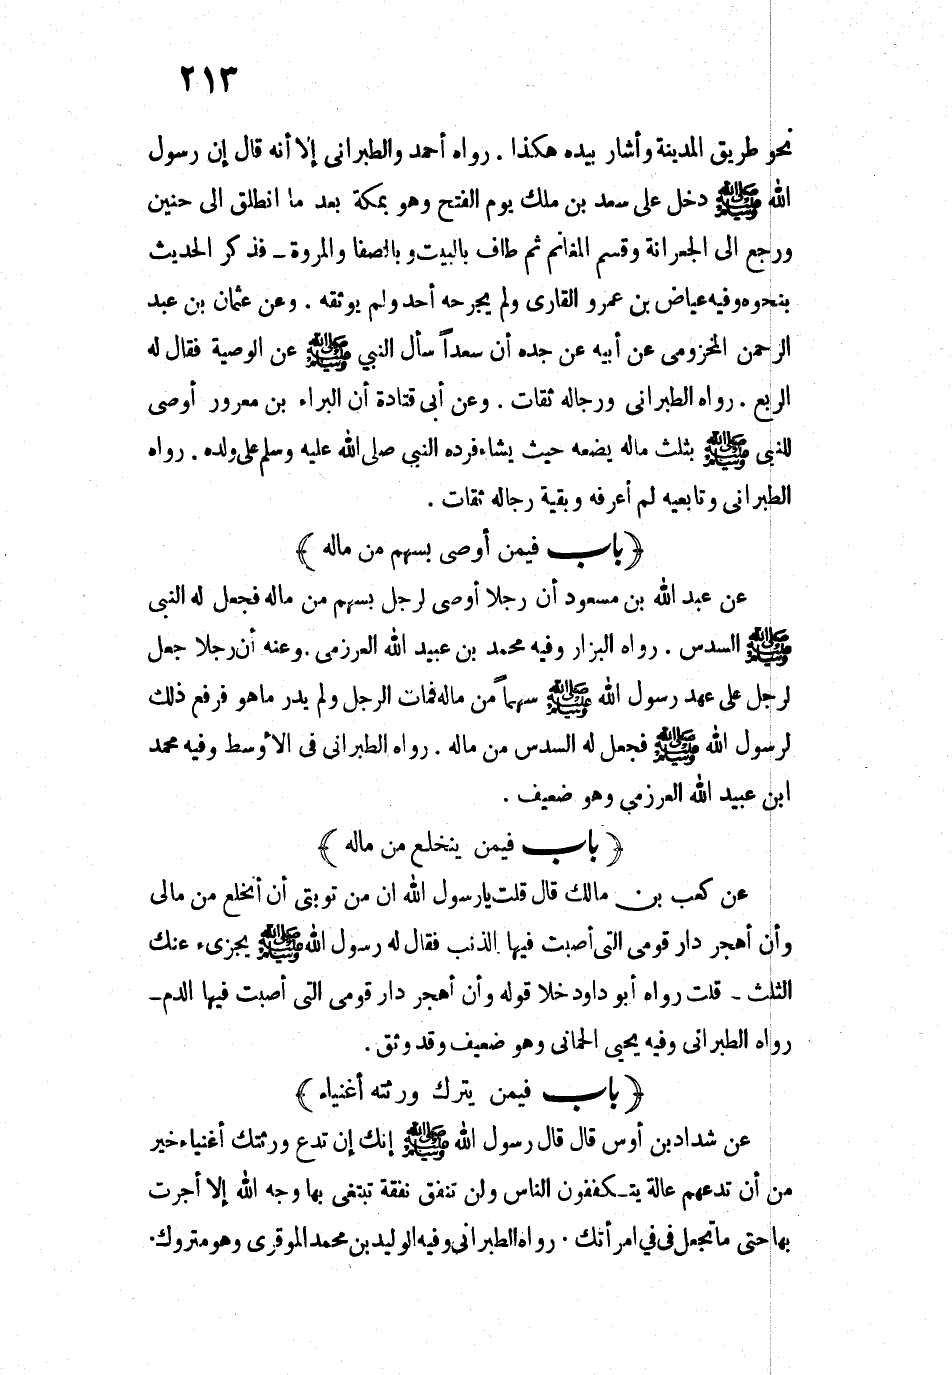 ٢١٣
نحو طريق المدينة وأشار بيده هكذا . رواه أحمد والطبرانى إلا أنه قال إن رسول
الله ﷺ دخل على سعد بن ملك يوم الفتح وهو بمكة بعد ما انطلق الى حنين
ورجع الى الجعرانة وقسم المغانم ثم طاف بالبيت وبالصفا والمروة - فذكر الحديث
بنحوه وفيه عياض بن عمرو القارى ولم يجرحه أحد ولم يوثقه . وعن عثمان بن عبد
الرحمن المخزومى عن أبيه عن جده أن سعداً سأل النبي ﷺ عن الوصية فقال له
الربع . رواه الطبرانى ورجاله ثقات . وعن أبى قتادة أن البراء بن معرور أوصى
للنبى ﷺ بثلث ماله يضعه حيث يشاء فرده النبي صلى الله عليه وسلم على ولده . رواه
الطبرانى وتابعيه لم أعرفه وبقية رجاله ثقات .
﴿ باب فيمن أوصى بسهم من ماله ﴾
عن عبد الله بن مسعود أن رجلا أوصى لرجل بسهم من ماله فجعل له النبى
ﷺ السدس . رواه البزار وفيه محمد بن عبيد الله العرزمى . وعنه أن رجلا جعل
لرجل على عهد رسول الله ﷺ سهماً من ماله فمات الرجل ولم يدر ماهو فرفع ذلك
لرسول الله ﷺ فجعل له السدس من ماله . رواه الطبرانى فى الأوسط وفيه محمد
ابن عبيد الله العرزمي وهو ضعيف .
﴿ باب فيمن ينخلع من ماله ﴾
عن كعب بن مالك قال قلت يارسول الله ان من توبتى أن أنخلع من مالى
وأن أهجر دار قومى التى أصبت فيها الذنب فقال له رسول الله ﷺ يجزىء عنك
الثلث - قلت رواه أبو داود خلا قوله وأن أهجر دار قومى التى أصبت فيها الدم-
رواه الطبرانى وفيه يحيى الحمانى وهو ضعيف وقد وثق .
﴿ باب فيمن يترك ورثته أغنياء ﴾
عن شداد بن أوس قال قال رسول الله ﷺ إنك إن تدع ورثتك أغنياء خير
من أن تدعهم عالة يتكففون الناس ولن تنفق نفقة تبتغى بها وجه الله إلا أجرت
بها حتى ماتجعل فى في امرأتك . رواه الطبرانى وفيه الوليد بن محمد الموقرى وهو متروك .